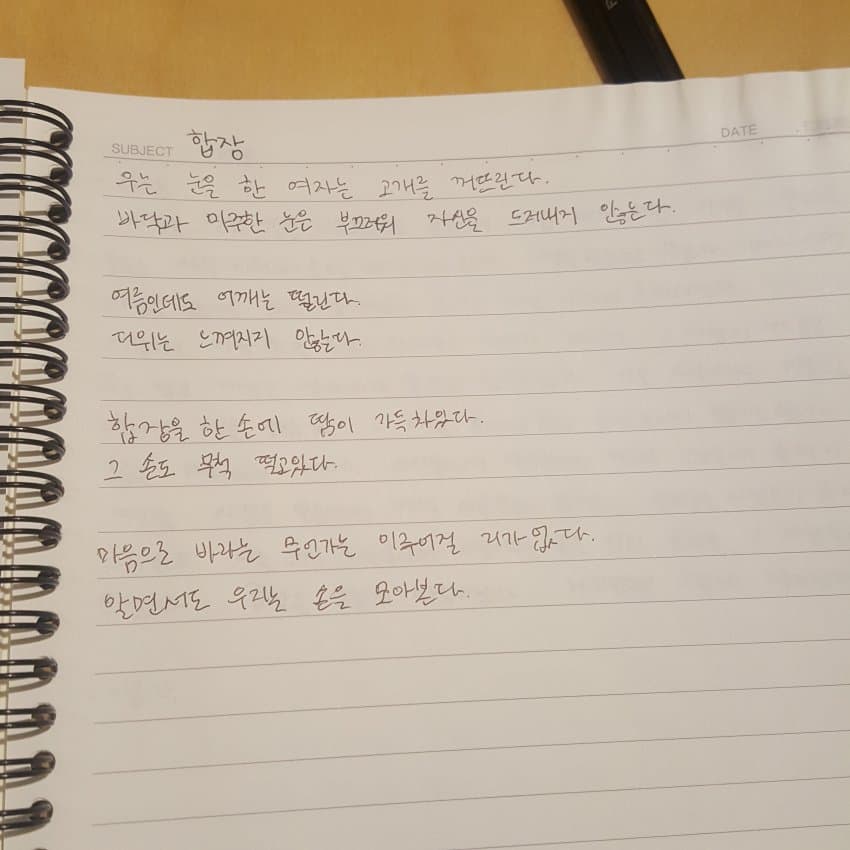 SUBJECT 합장
DATE
우는 눈을 한 여자는 고개를 꺼뜨린다.
바닥과 마주한 눈은 부끄러워 자신을 드러내지 않는다.
여름인데도 어깨는 떨린다.
더위는 느껴지지 않는다.
합장을 한 손에 땀이 가득차있다.
그 손도 무척 떨고있다.
마음으로 바라는 무언가는 이루어질 리가 없다.
알면서도 우리는 손을 모아본다.